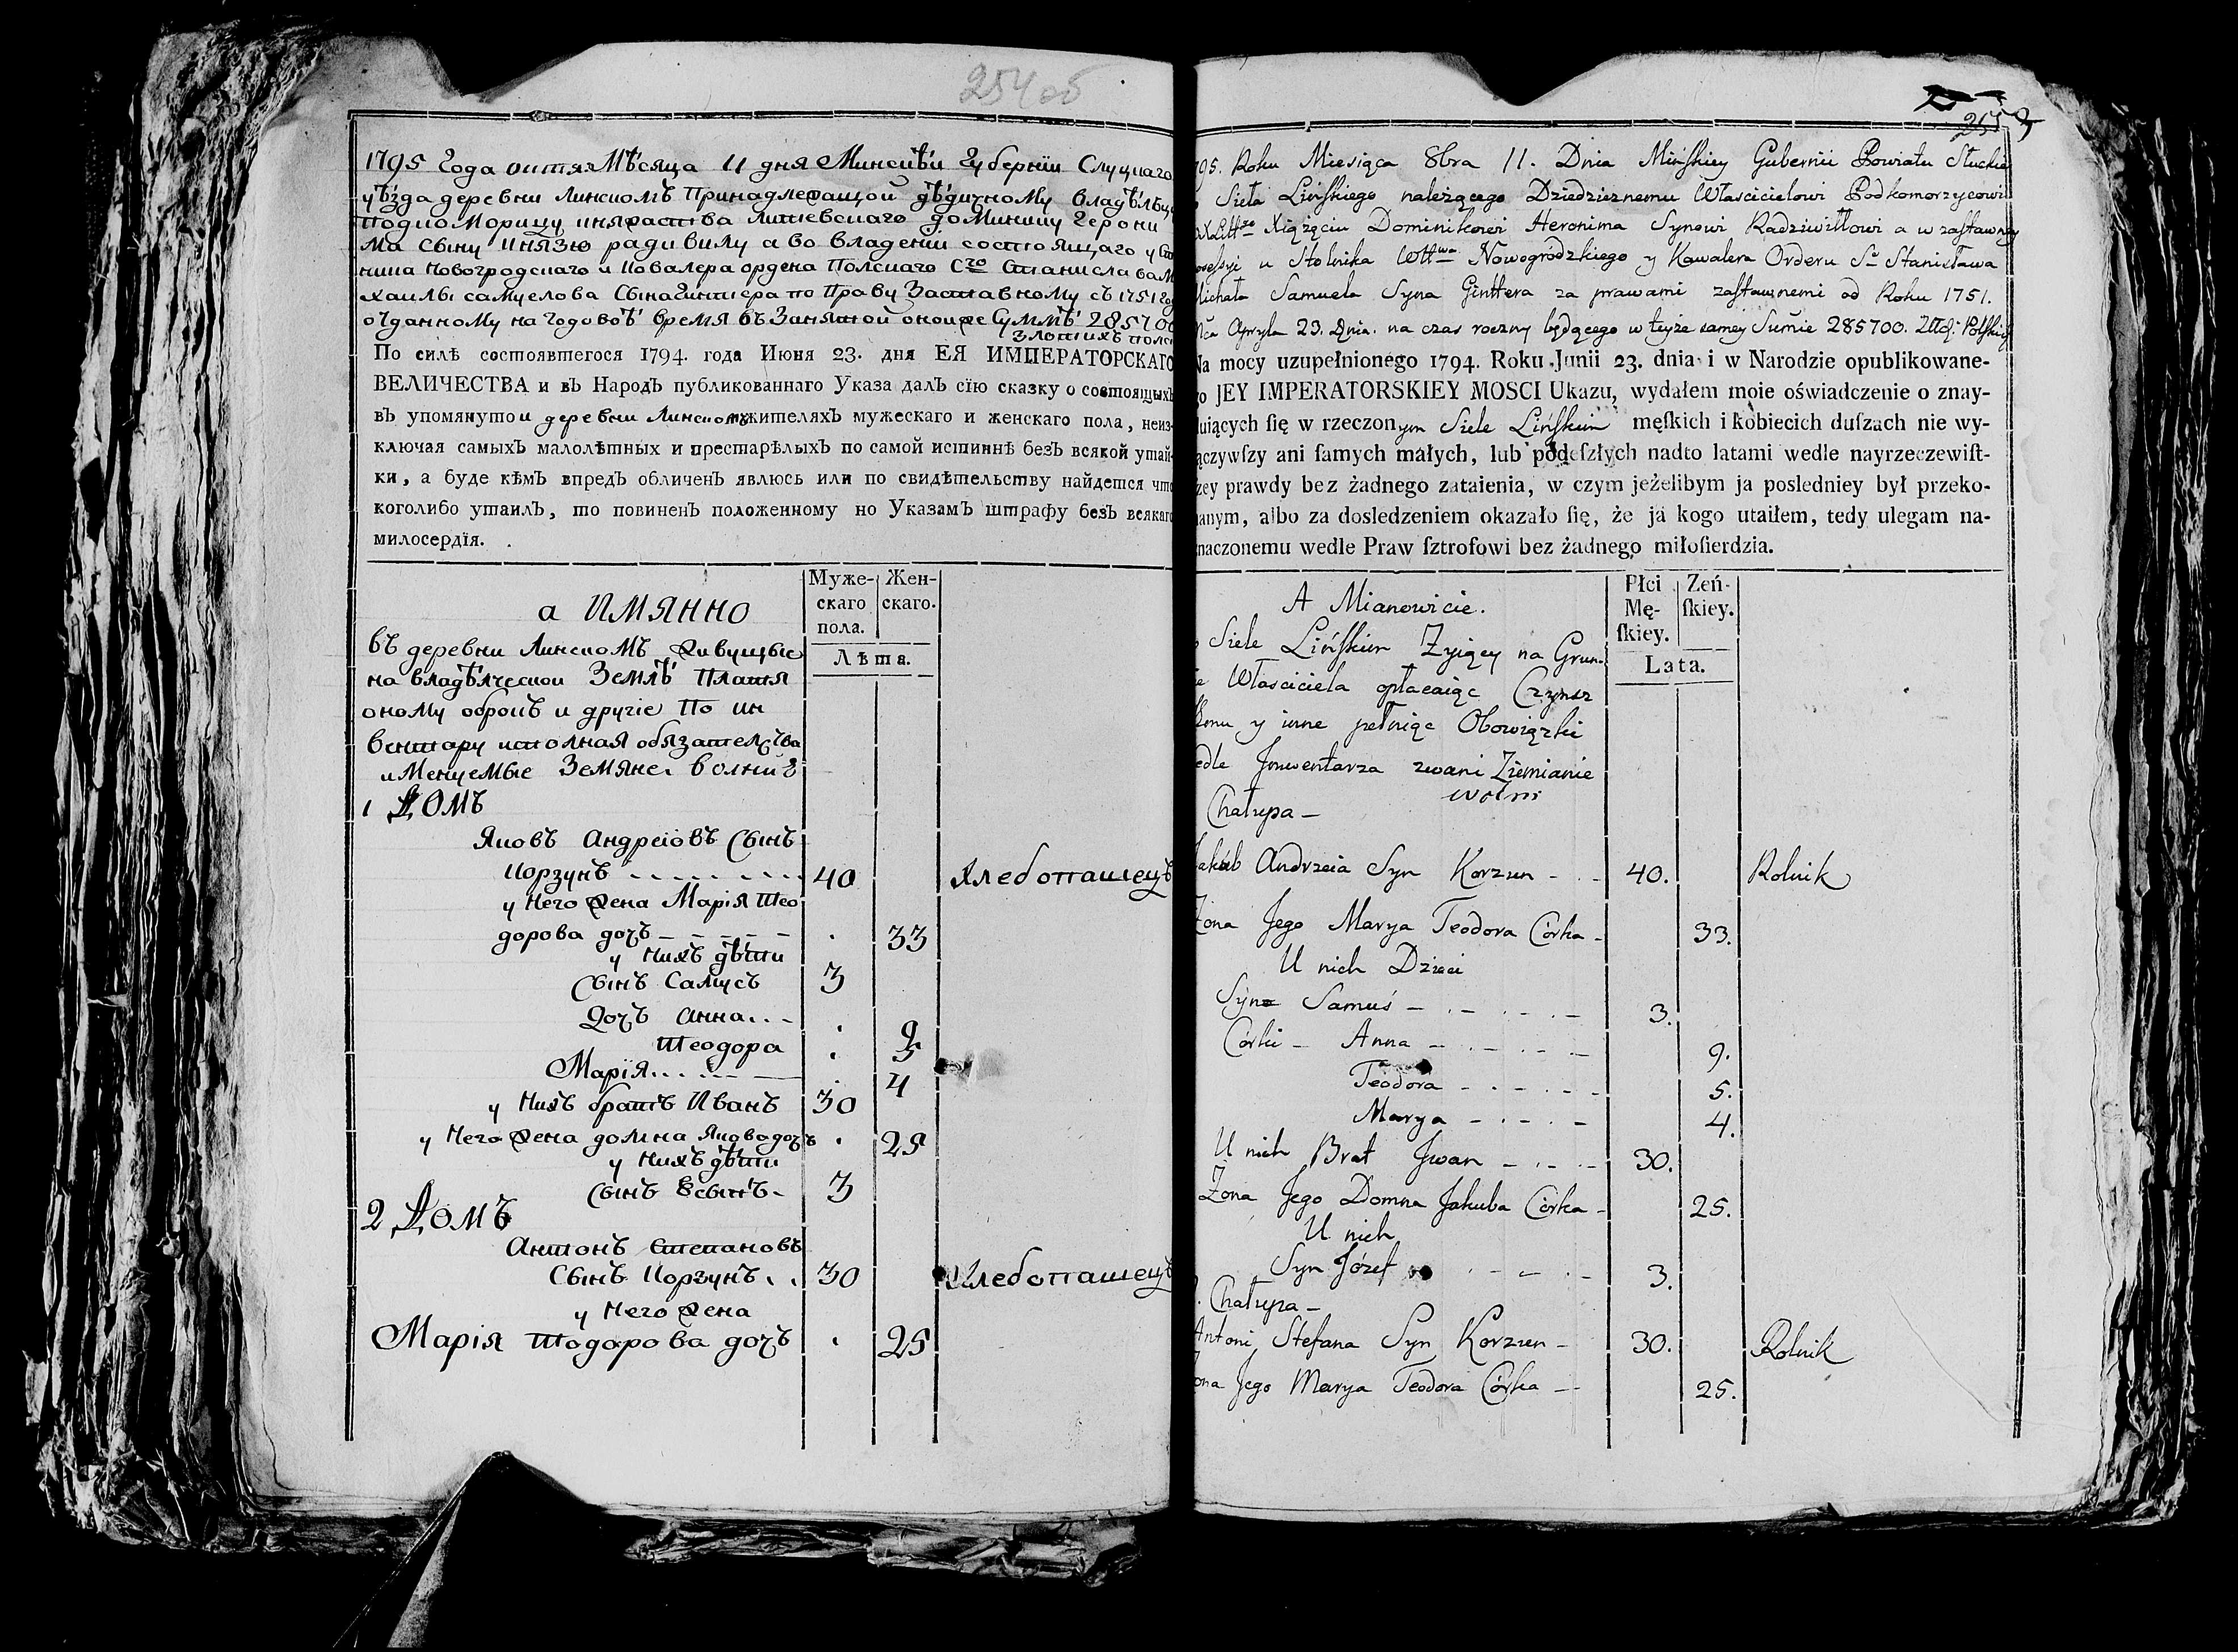 254об
1795 Года октяб Мѣсяца 11 дня Минскѣи Губернiи Слуцкаго
уѣзда деревни Линскомъ Принадлежащой дѣдичному владѣлцу
подкоморицу княжства литевскаго доминику Герони
ма Сыну Князю радивилу а во владенiи состоящаго у Сто
ника Новогродскаго и Кавалера ордена Полскаго Сго Станислава М
хаилы самуелова Сына Гинтера по Праву Заставному съ 1751 го
отданному на годовоѣ время въ Занятой оноиже Суммѣ 285700
злотихъ полс
По силѣ состоявшегося 1794. года Июня 23. дня ЕЯ ИМПЕРАТОРСКАГО
ВЕЛИЧЕСТВА и въ Народъ публикованнаго Указа далъ сїю сказку о состоящыхъ
въ упомянутои деревни Линскомъ жителяхъ мужескаго и женскаго пола, неиз-
ключая самыхъ малолѣтныхъ и престарѣлыхъ по самой истиннѣ безъ всякой утай-
ки, а буде кѣмъ впредъ обличенъ явлюсь или по свидѣтельству найдется что
коголибо утаилъ, то повиненъ положенному по Указамъ штрафу безъ всякаго
милосердїя.
Муже-
скаго
пола.
Жен-
скаго.
Лѣта.
а ИМЯННО
въ деревни Линскомъ живущые
на владѣлческой Землѣ Платя
оному оброкъ и другiе По ин
вентару исполная обязателства
имENуемые Земяне волниѣ
1 ДОМЪ
Яковъ Андреiовъ Сынъ
Корзунъ 40 Хлебопашецъ
у Него Жена Марiя Тео
дорова дочъ 33
у Нихъ дѣти
Сынъ Самусъ 3
Дочъ Анна 9
Теодора 5
Марiя 4
у Нихъ братъ Иванъ 30
у Него Жена домна Яковa дочъ 25
у Нихъ дѣти
Сынъ 3
2 ДОМЪ
Антонъ Степановъ
Сынъ Корзунъ 30 Хлебопашецъ
у Него Жена
Марiя Тодорова дочъ 25
95. Roku Miesiąca 8bra 11. Dnia Mińskiey Gubernii Powiatu Słuckie
Sieła Lińskiego należącego Dziedzicznemu Własci­cielowi Podkomorzycowi
Xiążęciu Dominikowi Heronima Synowi Radziwiłłowi a w zastawney
ossessyi u Stolnika Wttwa Nowogródzkiego y Kawalera Orderu Sgo Stanisława
Michała Samuela Syna Ginttera za prawami zastawnemi od Roku 1751.
Apryla 23. dnia. na czas roczny będącego w teyże samey Sumie 285700. Złłł: Polskich
Na mocy uzupełnionego 1794. Roku Junii 23. dnia i w Narodzie opublikowane-
go JEY IMPERATORSKIEY MOSCI Ukazu, wydałem moie oświadczenie o znay-
duiących ſię w rzeczonym Siele Lińskim męſkich i kobiecich duſzach nie wy-
łączywſzy ani ſamych małych, lub podeſzłych nadto latami wedle nayrzeczewiſt-
zey prawdy bez żadnego zataienia, w czym jeżelibym ja posledniey był przeko-
nanym, albo za dosledzeniem okazało ſię, że ja kogo utaiłem, tedy ulegam na-
znaczonemu wedle Praw ſztrofowi bez żadnego miłoſierdzia.
Płci
Mę-
ſkiey.
Zeń-
ſkiey.
Lata.
A Mianowicie.
Siele Lińskim Zyiący na Grun-
cie Własciciela opłacaiąc Czynsz
y inne pełniąc Obowiązki
edle Jnwentarza zwani Ziemianie
wolni
Chałupa
Jakub Andrzeia Syn Korzun 40. Rolnik
Żona Jego Marya Teodora Córka 33.
U nich Dzieci
Syn Samuś 3.
Córki Anna 9.
Teodora 5.
Marya 4.
U nich Brat Jwan 30.
Żona Jego Domna Jakuba Córka 25.
U nich
Syn Józef 3.
Chałupa
Antoni Stefana Syn Korzun 30. Rolnik
ona Jego Marya Teodora Córka 25.